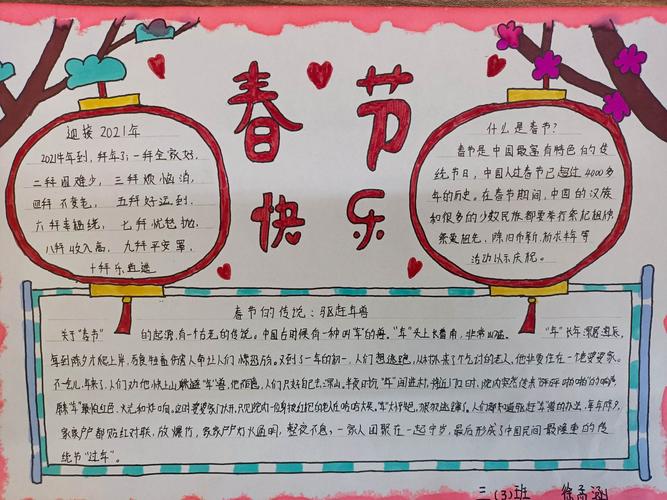 春节
快乐
迎接 2021年
2021牛年到,拜年了;一拜全家好,
二拜困难少,三拜烦恼消,
四拜不变老,五拜好运到,
六拜幸福绕,七拜忧愁抛,
八拜收入高,九拜平安罩,
十拜乐逍遥
什么是春节?
春节是中国最富有特色的传
统节日,中国人过春节已超过4000多
年的历史。在春节期间,中国的汉族
和很多的少数民族都要举行祭祀祖神
祭奠祖先,除旧布新,祈求丰年等
活动以示庆祝。
春节的传说:驱赶年兽
关于"春节" 的起源,有一个古老的传说。中国古时候有一种叫"年"的兽。"年"头上长着角,非常凶猛。 "年"长年深居海底,
每到除夕才爬上岸,
又到了一年的 人们想逃跑,
人们劝他快上山躲避"年"兽,他 人们只好自己
"年"闯进村, 院内突然传来"砰砰啪啪"的响声
原来"年"最怕红色、火光和炸响。这时婆婆家门大开,只见院内一位身披红袍的老人在哈哈大笑。"年"大惊 狼狈逃蹿了。人们都知道驱赶"年"兽的办法,每年除夕,
家家户户都贴红对联,放爆竹,家家户户灯火通明,整夜不息,一家人团聚在一起守岁,最后形成了中国民间最隆重的传
统节"过年"。
三(3)班 徐孟涵